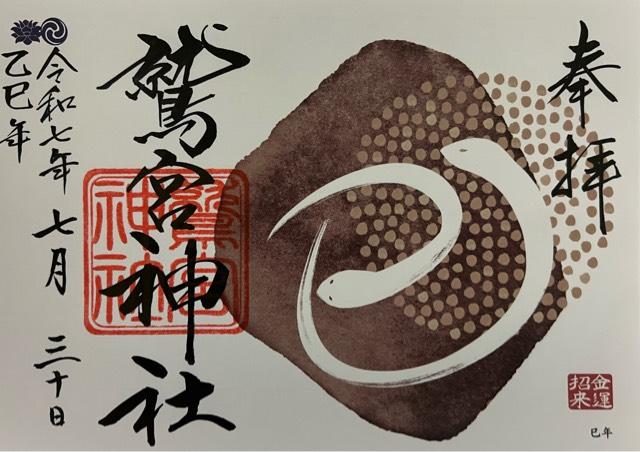 奉拝
巳年
金運
招来
鷲宮神社
鷲宮
神社
令和七年 七月 三十日
乙巳年